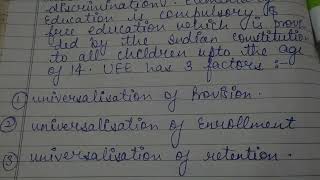 discrimination). Elementary
Education is compulsory &
free education which is provi
ded by the Indian constitution
to all children upto the age
of 14. UEE has 3 factors :-
① universalisation of Provision.
② universalisation of Enrollment
③ universalisation of retention.